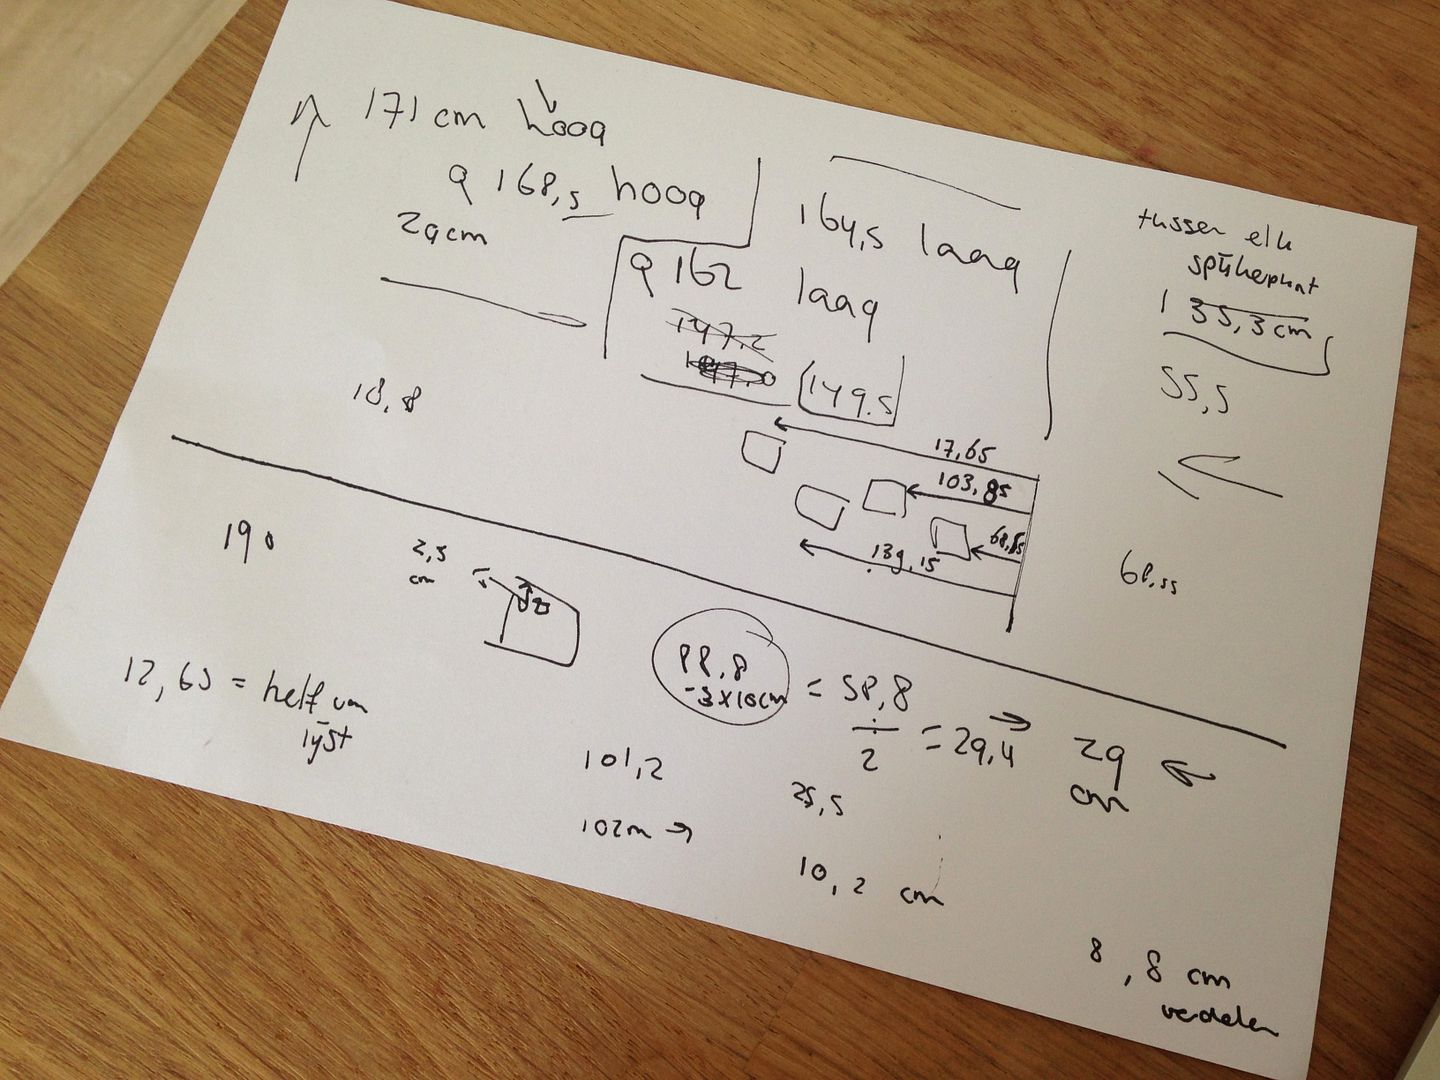 171 cm hoog
168,5 hoog
164,5 laag
29 cm
162 laag
147,2
149.5
tussen elk
spijkerpunt
35,3 cm
55,5
18,8
17,65
103,85
68,85
139,15
68,55
190
2,5
cm
12,65 = helft van
lijst
88,8
-3x10cm = 58,8
÷ 2 = 29,4 → 29
cm
101,2
25,5
102m →
10,2 cm
8,8 cm
verdelen